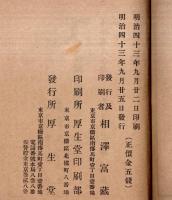 明治四十三年九月廿二日印刷
明治四十三年九月廿五日發行
（正價金五錢）
發行及印刷者
相澤富藏
東京市京橋區南傳馬町壹丁目壹番地
印刷所 厚生堂印刷部
東京市京橋區北槇町八番地
發行所 厚生堂
東京市京橋區南傳馬町壹丁目壹番地